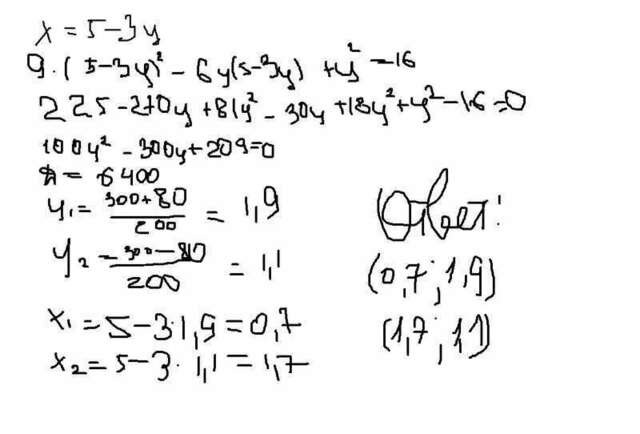 x = 5 - 3y
9 · (5-3y)² - 6y(5-3y) + y² = 16
225 - 270y + 81y² - 30y + 18y² + y² - 16 = 0
100y² - 300y + 209 = 0
D = 6400
y₁ = (300+80)/200 = 1,9
y₂ = (300-80)/200 = 1,1
x₁ = 5 - 3·1,9 = 0,7
x₂ = 5 - 3 · 1,1 = 1,7
Ответ:
(0,7 ; 1,9)
(1,7 ; 1,1)